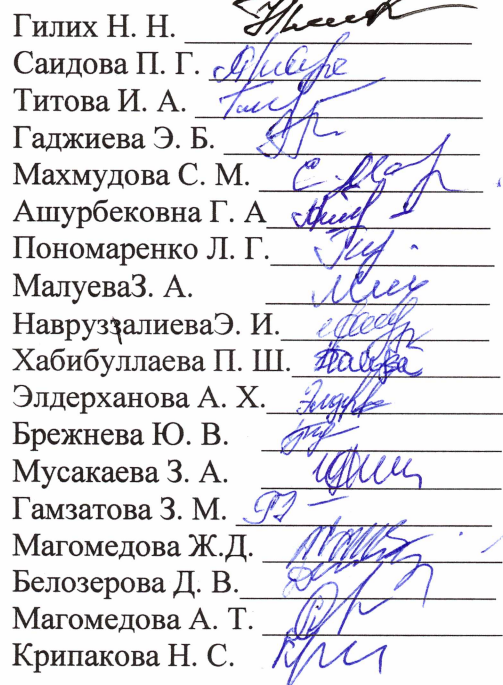 Гилих Н. Н.
Саидова П. Г.
Титова И. А.
Гаджиева Э. Б.
Махмудова С. М.
Ашурбековна Г. А
Пономаренко Л. Г.
МалуеваЗ. А.
НаврузалиеваЭ. И.
Хабибуллаева П. Ш.
Элдерханова А. Х.
Брежнева Ю. В.
Мусакаева З. А.
Гамзатова З. М.
Магомедова Ж.Д.
Белозерова Д. В.
Магомедова А. Т.
Крипакова Н. С.